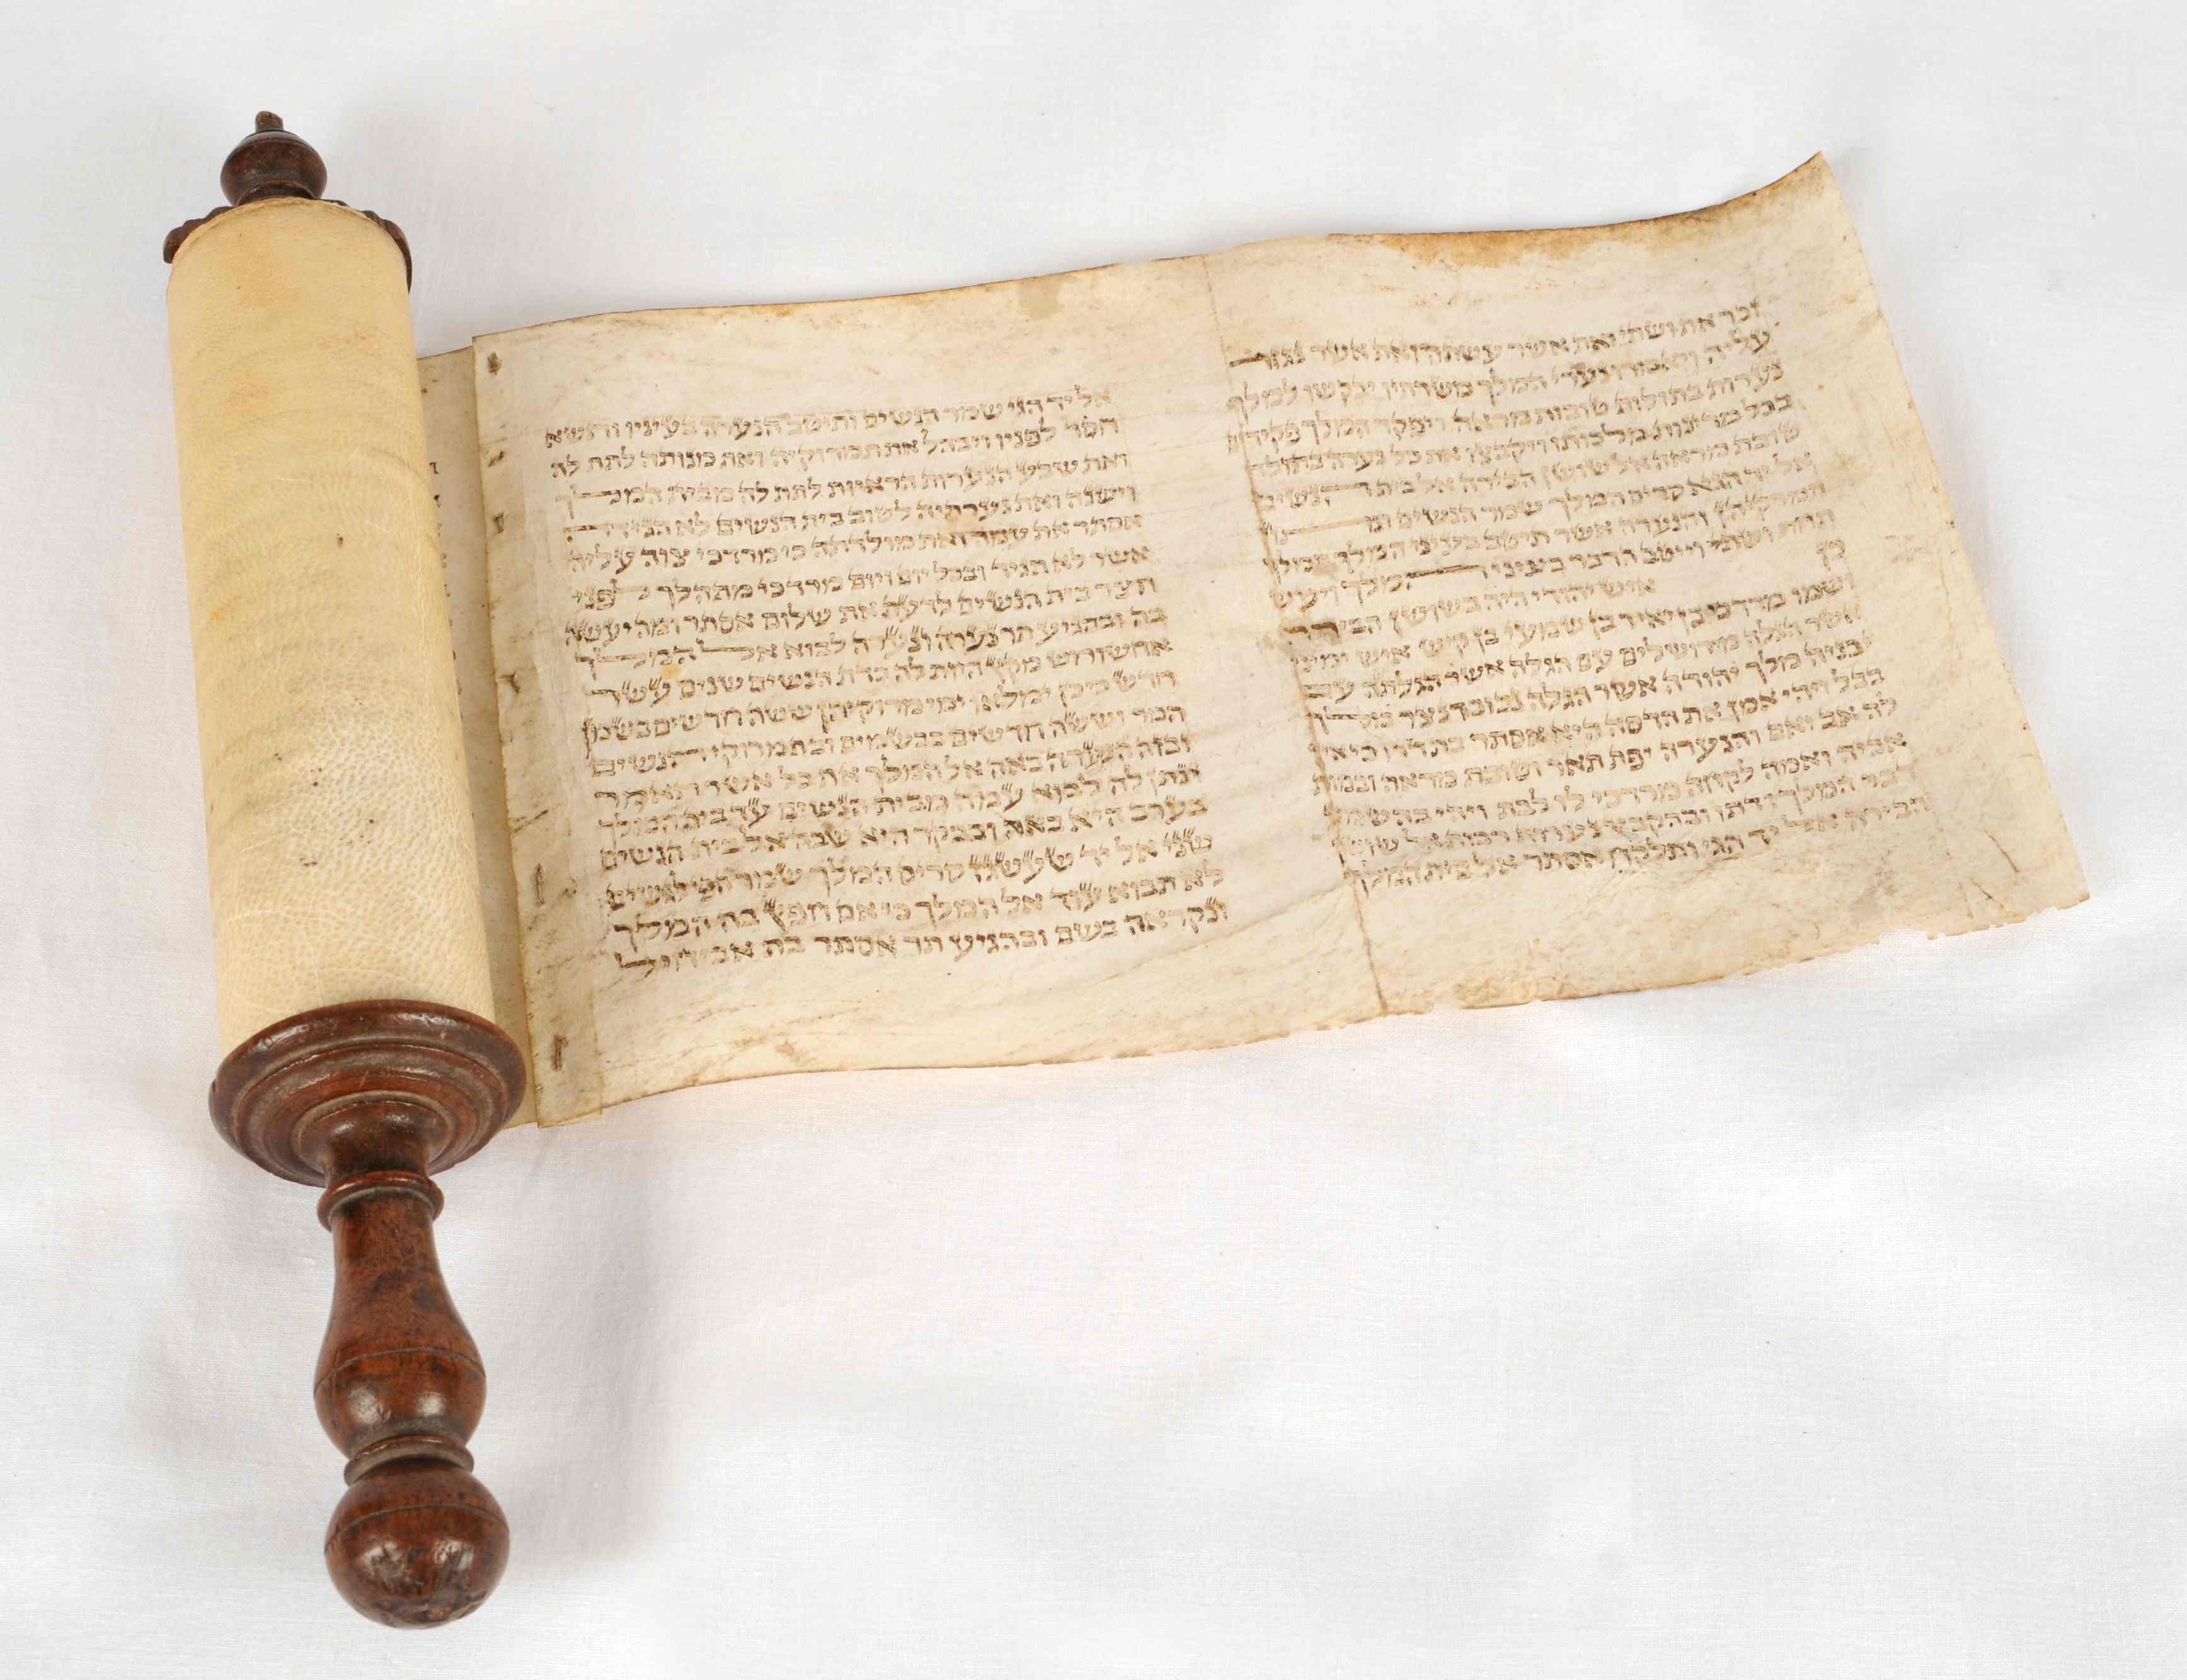 זכר את ושתי ואת אשר עשתה ואת אשר נגזר
עליה ויאמרו נערי המלך משרתיו יבקשו למלך
נערות בתולות טובות מראה ויפקד המלך פקידים
בכל מדינות מלכותו ויקבצו את כל נערה בתולה
טובת מראה אל שושן הבירה אל בית הנשים
אל יד הגא סריס המלך שמר הנשים ונתון
תמרקיהן והנערה אשר תיטב בעיני המלך תמלך
תחת ושתי וייטב הדבר בעיני המלך ויעש
כן איש יהודי היה בשושן הבירה
ושמו מרדכי בן יאיר בן שמעי בן קיש איש ימיני
אשר הגלה מירושלים עם הגלה אשר הגלתה עם
יכניה מלך יהודה אשר הגלה נבוכדנצר מלך
בבל ויהי אמן את הדסה היא אסתר בת דדו כי אין
לה אב ואם והנערה יפת תאר וטובת מראה ובמות
אביה ואמה לקחה מרדכי לו לבת ויהי בהשמע
דבר המלך ודתו ובהקבץ נערות רבות אל שושן
הבירה אל יד הגי ותלקח אסתר אל בית המלך
אל יד הגי שמר הנשים ותיטב הנערה בעיניו ותשא
חסד לפניו ויבהל את תמרוקיה ואת מנותה לתת לה
ואת שבע הנערות הראיות לתת לה מבית המלך
וישנה ואת נערתיה לטוב בית הנשים לא הגידה
אסתר את עמה ואת מולדתה כי מרדכי צוה עליה
אשר לא תגיד ובכל יום ויום מרדכי מתהלך לפני
חצר בית הנשים לדעת את שלום אסתר ומה יעשה
בה ובהגיע תר נערה ונערה לבוא אל המלך
אחשורוש מקץ היות לה כדת הנשים שנים עשר
חדש כי כן ימלאו ימי מרוקיהן ששה חדשים בשמן
המר וששה חדשים בבשמים ובתמרוקי הנשים
ובזה הנערה באה אל המלך את כל אשר תאמר
ינתן לה לבוא עמה מבית הנשים עד בית המלך
בערב היא באה ובבקר היא שבה אל בית הנשים
שני אל יד שעשגז סריס המלך שמר הפילגשים
לא תבוא עוד אל המלך כי אם חפץ בה המלך
ונקראה בשם ובהגיע תר אסתר בת אביחיל